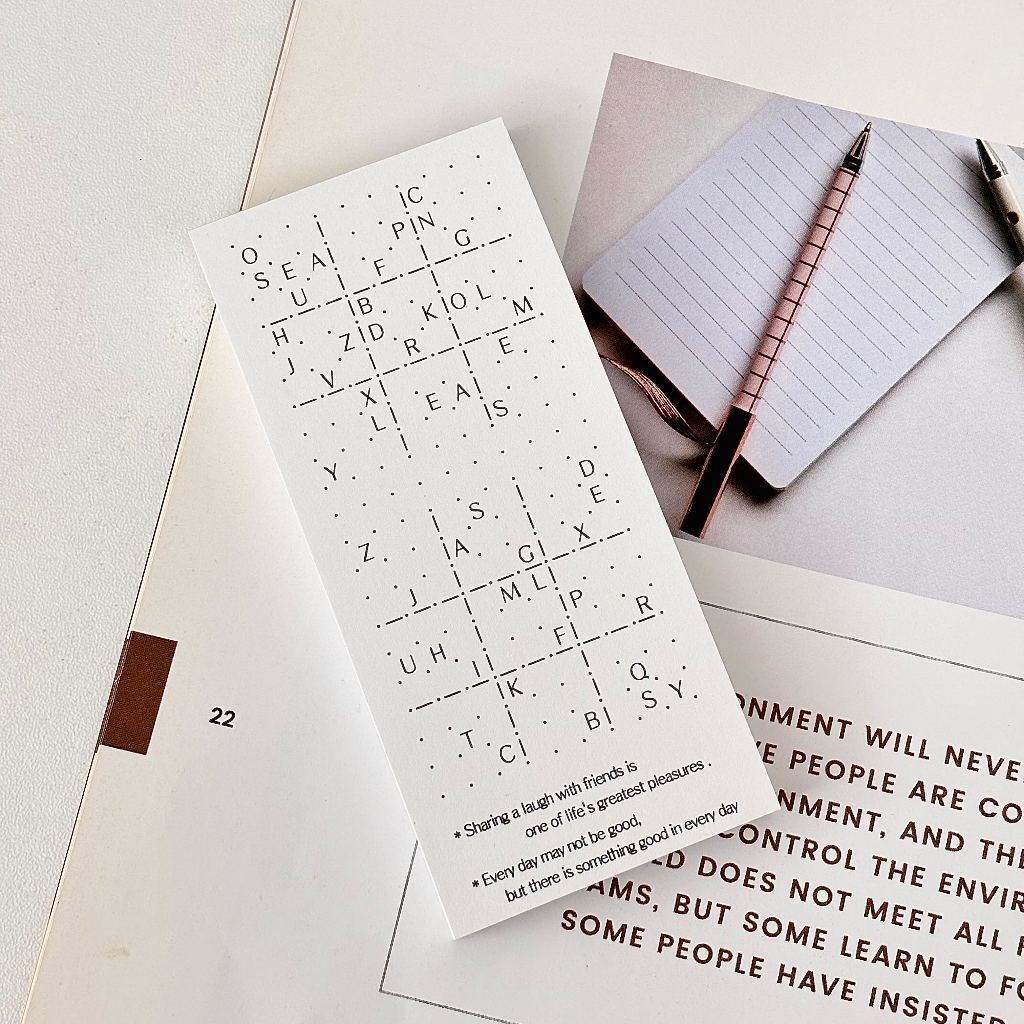 O C
S E A P N
U F G
H B
J Z D K O L
V R M
X E
L E A
Y S
Z S D
A E
J G X
M L
U H P
I F R
K
T Q
C B S Y
* Sharing a laugh with friends is
one of life's greatest pleasures .
* Every day may not be good,
but there is something good in every day
22
WILL NEVE
PEOPLE ARE CO
AND THE
CONTROL THE ENVIR
DOES NOT MEET ALL
BUT SOME LEARN TO FO
SOME PEOPLE HAVE INSISTED